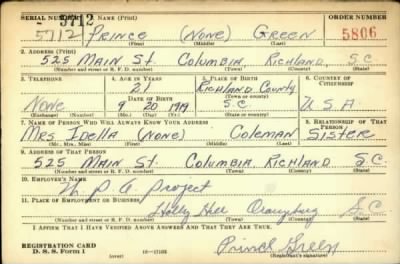 SERIAL NUMBER 5712 1. NAME (Print) ORDER NUMBER
5712 PRINCE (NONE) GREEN 5806
(First) (Middle) (Last)
2. ADDRESS (Print)
525 MAIN ST. COLUMBIA, RICHLAND, S.C
(Number and street or R. F. D. number) (Town) (County) (State)
3. TELEPHONE 4. AGE IN YEARS 5. PLACE OF BIRTH 6. COUNTRY OF CITIZENSHIP
21 RICHLAND COUNTY
DATE OF BIRTH (Town or county)
NONE 9 20 1919 S.C U.S.A.
(Exchange) (Number) (Mo.) (Day) (Yr.) (State or country)
7. NAME OF PERSON WHO WILL ALWAYS KNOW YOUR ADDRESS 8. RELATIONSHIP OF THAT PERSON
MRS IDELLA (NONE) COLEMAN SISTER
(Mr., Mrs., Miss) (First) (Middle) (Last)
9. ADDRESS OF THAT PERSON
525 MAIN ST. COLUMBIA, RICHLAND, S.C
(Number and street or R. F. D. number) (Town) (County) (State)
10. EMPLOYER'S NAME
W. P. A. Project
11. PLACE OF EMPLOYMENT OR BUSINESS
Holly Hill Orangeburg S.C
(Number and street or R. F. D. number) (Town) (County) (State)
I AFFIRM THAT I HAVE VERIFIED ABOVE ANSWERS AND THAT THEY ARE TRUE.
REGISTRATION CARD
D. S. S. Form 1 (over) Prince Green
(Registrant's signature)